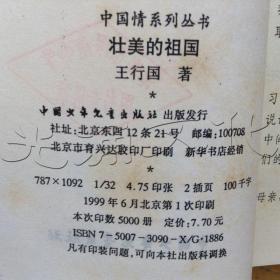 中国情系列丛书
壮美的祖国
王行国 著
*
中国少年儿童出版社 出版发行
社址:北京东四12条21号 邮编:100708
北京市育兴达胶印厂印刷 新华书店经销
*
787×1092 1/32 4.75印张 2插页 100千字
1999年6月北京第1次印刷
本次印数5000册 定价:7.70元
ISBN 7-5007-3090-X/G·1886
凡有印装问题,可向本社出版科调换
习
说
中间
们的
母亲